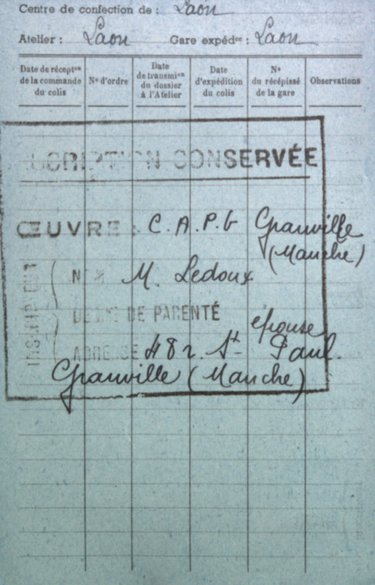 Centre de confection de : Laon
Atelier : Laon Gare expédre : Laon
Date de récepton de la commande du colis
N° d'ordre
Date de transmion du dossier à l'Atelier
Date d'expédition du colis
N° du récépissé de la gare
Observations
INSCRIPTION CONSERVÉE
ŒUVRE : C.A.P.G Granville
(Manche)
INSCRIVANT
NOM M. Ledoux
DEGRÉ DE PARENTÉ épouse
ADRESSE 48 r. St Paul.
Granville (Manche)